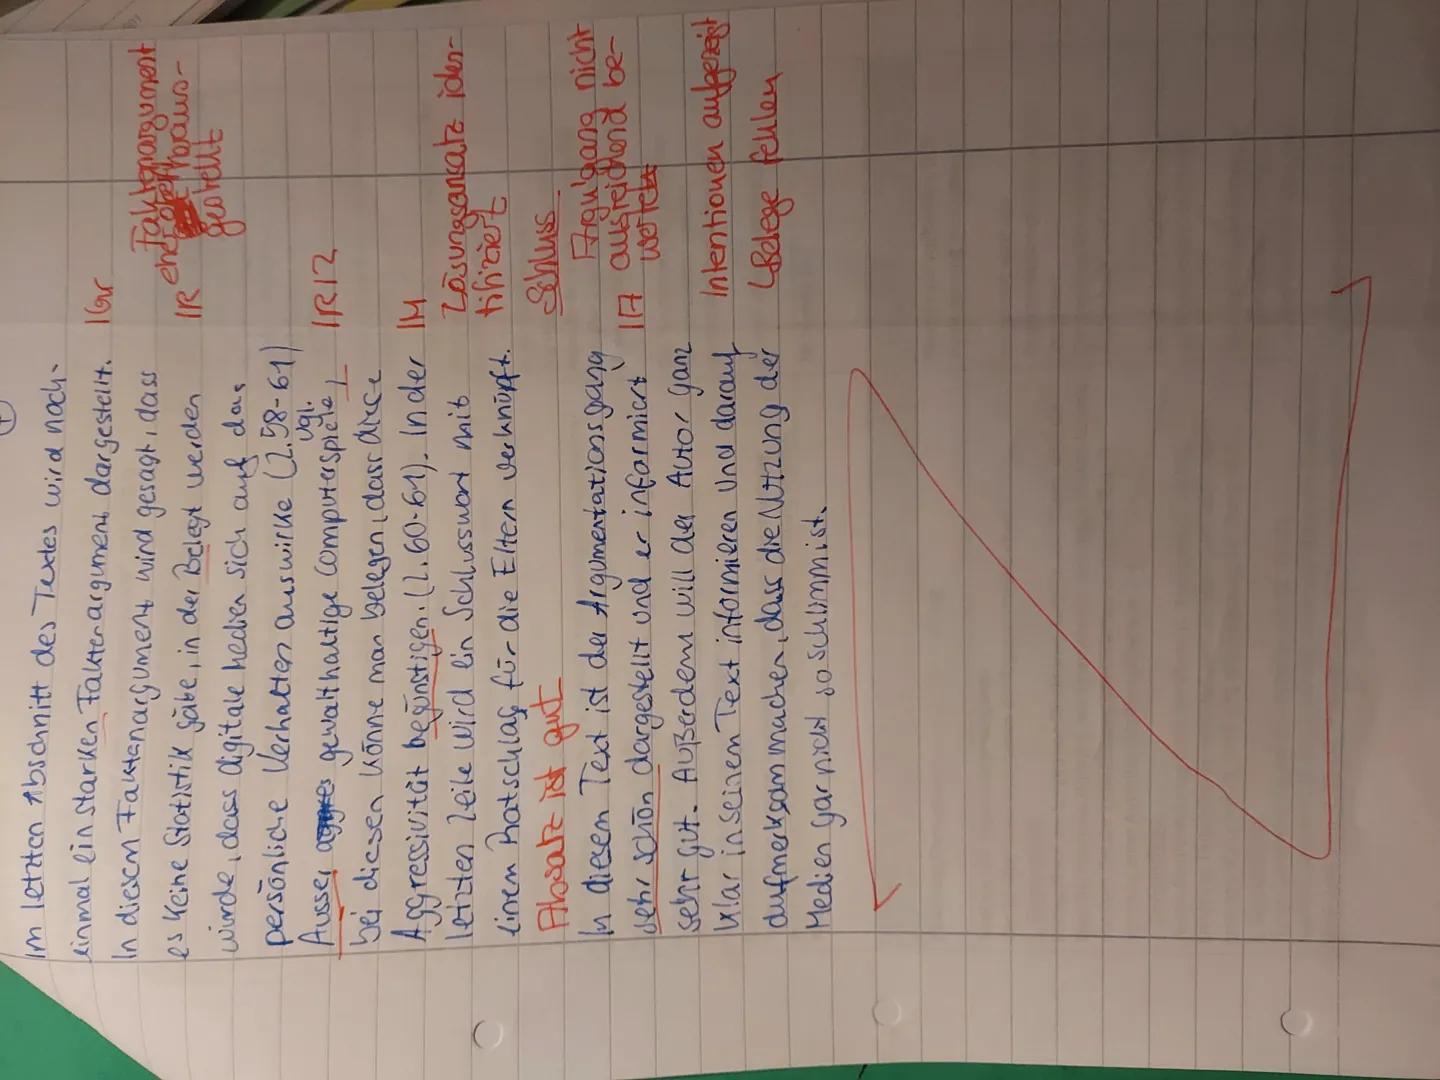 Im letzten Abschnitt des Textes wird noch-
einmal ein starken Faktenargument dargestellt. 1Gr
In diesem Faktenargument wird gesagt, dass
es keine Statistik gäbe, in der Belegt werden 1R
Faktenargument
eher
heraus-
gestellt
würde, dass digitale Medien sich auf das
persönliche Verhalten auswirke (Z.58-61)
vgl.
Ausser gewalthaltige computerspiele, 1R 1Z
bei diesen könne man belegen, dass diese
Aggressivität begünstigen. (Z.60-61). In der 1M
letzten Zeile wird ein Schlusswort mit
einem Ratschlag für die Eltern verknüpft.
Lösungsansatz iden-
tifiziert
Schluss
Absatz ist gut
In diesem Text ist der Argumentationsgang
sehr schön dargestellt und er informiert 1A
sehr gut. Außerdem will der Autor ganz
klar in seinem Text informieren und darauf
aufmerksam machen, dass die Nutzung der
Medien gar nicht so schlimm ist.
Argu'gang nicht
ausreichend be-
wertet
Intentionen aufgezeigt
Belege fehlen